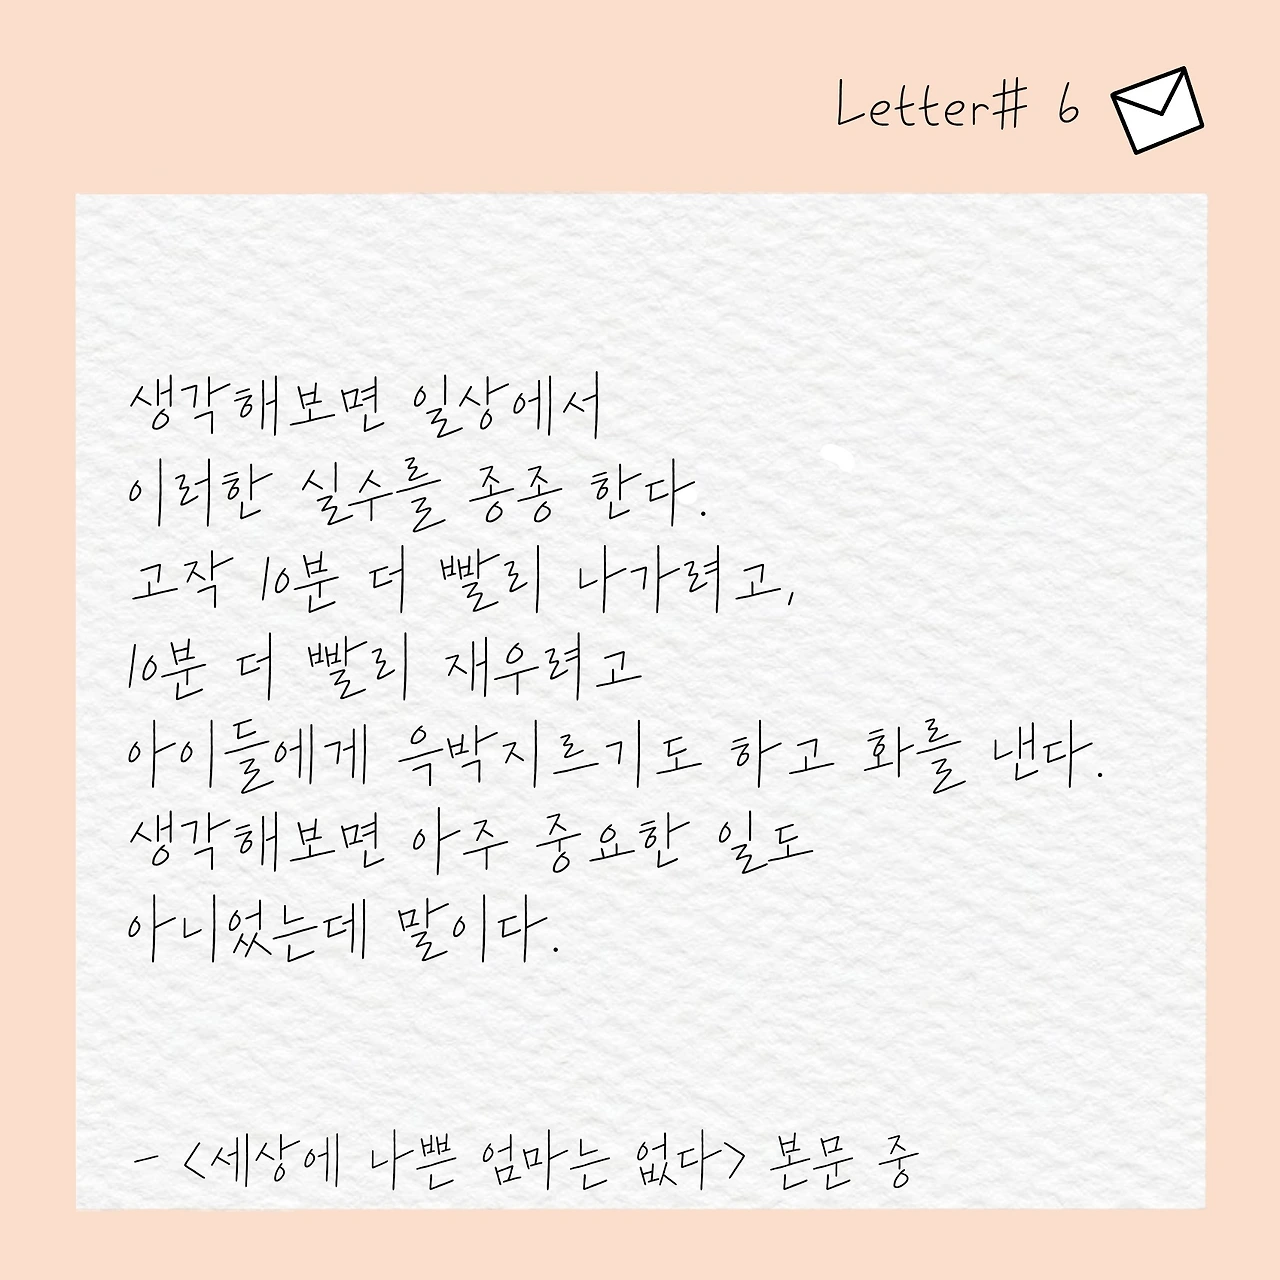 Letter# 6
생각해보면 일상에서
이러한 실수를 종종 한다.
고작 10분 더 빨리 나가려고,
10분 더 빨리 재우려고
아이들에게 윽박지르기도 하고 화를 낸다.
생각해보면 아주 중요한 일도
아니었는데 말이다.
- <세상에 나쁜 엄마는 없다> 본문 중